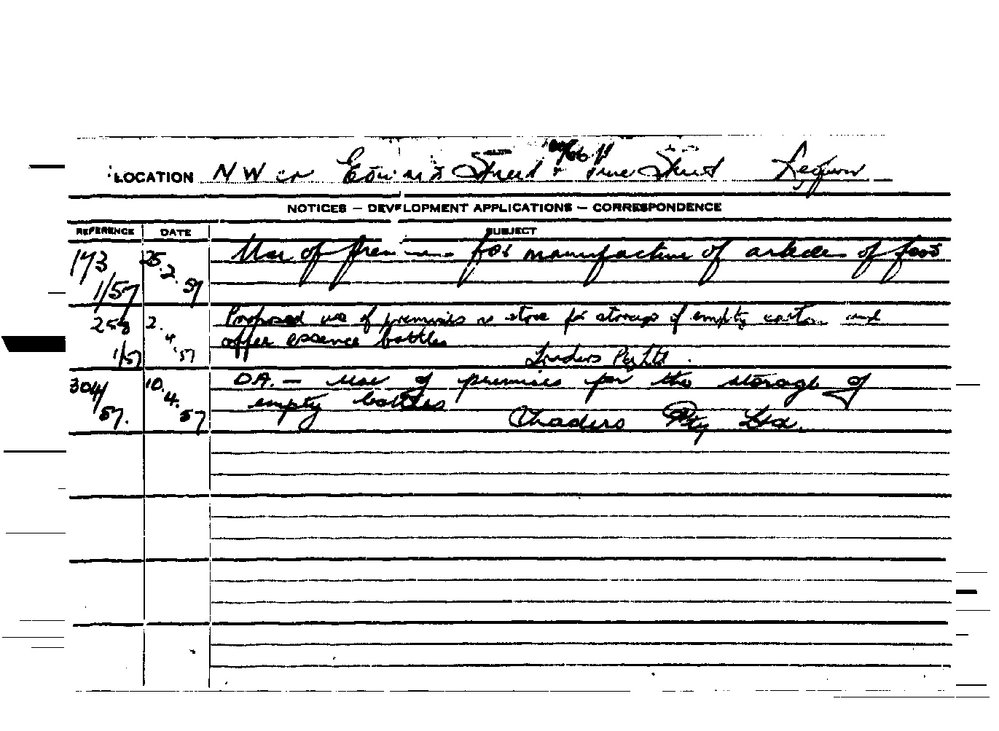 LOCATION N W cr Edward Street & Pine Street Redfern
NOTICES — DEVELOPMENT APPLICATIONS — CORRESPONDENCE
REFERENCE DATE SUBJECT
173 25.2. Use of premises for manufacture of articles of food
1/57 57
258 2. Proposed use of premises as store for storage of empty cartons and
4. offer essence bottles
1/57 57 Pty Ltd.
304/ 10. D.A. — Use of premises for the storage of
57. 4. 57 empty bottles
Pty Ltd.